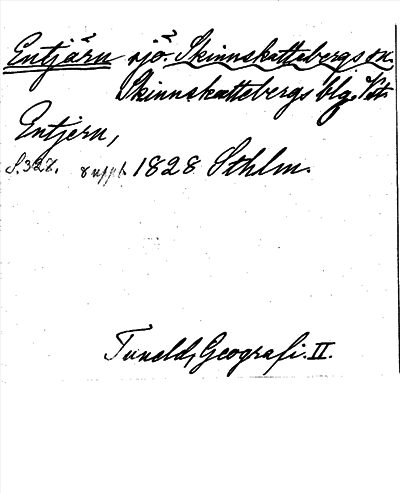 Entjärn sjö. Skinnskattebergs sn.
Skinnskattebergs blg. Vstm
Entjern,
S. 328. 8 uppl. 1828 Sthlm.
Tuneld, Geografi. II.